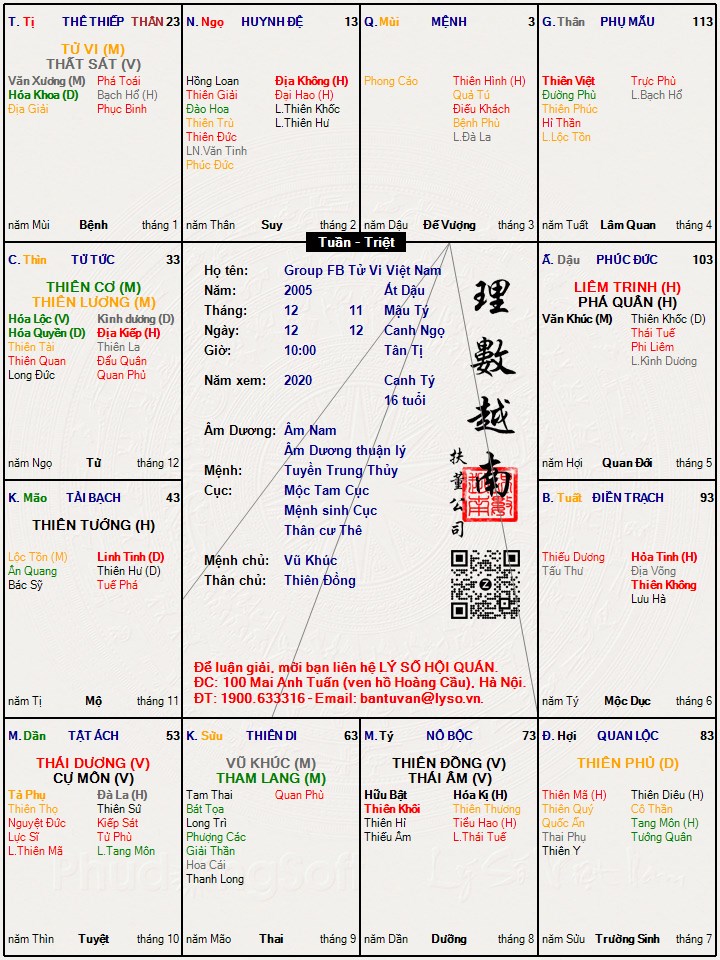 T. Tị THÊ THIẾP THÂN 23
TỬ VI (M)
THẤT SÁT (V)
Văn Xương (M) Phá Toái
Hóa Khoa (D) Bạch Hổ (H)
Địa Giải Phục Binh
năm Mùi Bệnh tháng 1
N. Ngọ HUYNH ĐỆ 13
Hồng Loan Địa Không (H)
Thiên Giải Đại Hao (H)
Đào Hoa L.Thiên Khốc
Thiên Trù L.Thiên Hư
Thiên Đức
LN.Văn Tinh
Phúc Đức
năm Thân Suy tháng 2
Q. Mùi MỆNH 3
Phong Cáo Thiên Hình (H)
Quả Tú
Điếu Khách
Bệnh Phù
L.Đà La
năm Dậu Đế Vượng tháng 3
G. Thân PHỤ MẪU 113
Thiên Việt Trực Phù
Đường Phù L.Bạch Hổ
Thiên Phúc
Hỉ Thần
L.Lộc Tồn
năm Tuất Lâm Quan tháng 4
Tuần - Triệt
C. Thìn TỬ TỨC 33
THIÊN CƠ (M)
THIÊN LƯƠNG (M)
Hóa Lộc (V) Kình dương (D)
Hóa Quyền (D) Địa Kiếp (H)
Thiên Tài Thiên La
Thiên Quan Đẩu Quân
Long Đức Quan Phủ
năm Ngọ Tử tháng 12
Họ tên: Group FB Tử Vi Việt Nam
Năm: 2005 Ất Dậu
Tháng: 12 11 Mậu Tý
Ngày: 12 12 Canh Ngọ
Giờ: 10:00 Tân Tị
Năm xem: 2020 Canh Tý
16 tuổi
Âm Dương: Âm Nam
Âm Dương thuận lý
Mệnh: Tuyền Trung Thủy
Cục: Mộc Tam Cục
Mệnh sinh Cục
Thân cư Thê
Mệnh chủ: Vũ Khúc
Thân chủ: Thiên Đồng
理數越南
扶董公司
Để luận giải, mời bạn liên hệ LÝ SỐ HỘI QUÁN.
ĐC: 100 Mai Anh Tuấn (ven hồ Hoàng Cầu), Hà Nội.
ĐT: 1900.633316 - Email: bantuvan@lyso.vn.
Ấ. Dậu PHÚC ĐỨC 103
LIÊM TRINH (H)
PHÁ QUÂN (H)
Văn Khúc (M) Thiên Khốc (D)
Thái Tuế
Phi Liêm
L.Kình Dương
năm Hợi Quan Đới tháng 5
K. Mão TÀI BẠCH 43
THIÊN TƯỚNG (H)
Lộc Tồn (M) Linh Tinh (D)
Ân Quang Thiên Hư (D)
Bác Sỹ Tuế Phá
năm Tị Mộ tháng 11
B. Tuất ĐIỀN TRẠCH 93
Thiếu Dương Hỏa Tinh (H)
Tấu Thư Địa Võng
Thiên Không
Lưu Hà
năm Tý Mộc Dục tháng 6
M. Dần TẬT ÁCH 53
THÁI DƯƠNG (V)
CỰ MÔN (V)
Tả Phụ Đà La (H)
Thiên Thọ Thiên Sứ
Nguyệt Đức Kiếp Sát
Lực Sĩ Tử Phù
L.Thiên Mã L.Tang Môn
năm Thìn Tuyệt tháng 10
K. Sửu THIÊN DI 63
VŨ KHÚC (M)
THAM LANG (M)
Tam Thai Quan Phù
Bát Tọa
Long Trì
Phượng Các
Giải Thần
Hoa Cái
Thanh Long
năm Mão Thai tháng 9
M. Tý NÔ BỘC 73
THIÊN ĐỒNG (V)
THÁI ÂM (V)
Hữu Bật Hóa Kị (H)
Thiên Khôi Thiên Thương
Thiên Hỉ Tiểu Hao (H)
Thiếu Âm L.Thái Tuế
năm Dần Dưỡng tháng 8
Đ. Hợi QUAN LỘC 83
THIÊN PHỦ (D)
Thiên Mã (H) Thiên Diêu (H)
Thiên Quý Cô Thần
Quốc Ấn Tang Môn (H)
Thai Phụ Tướng Quân
Thiên Y
năm Sửu Trường Sinh tháng 7